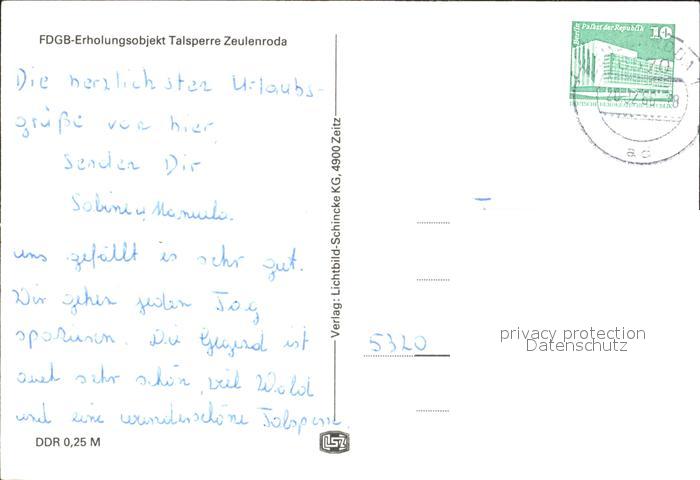 FDGB-Erholungsobjekt Talsperre Zeulenroda
Die herzlichsten Urlaubs-
grüße von hier
senden Dir
Sabine u. Manuela.
uns gefällt es sehr gut.
Wir gehen jeden Tag
spazieren. Die Gegend ist
auch sehr schön, viel Wald
und eine wunderschöne Talsperre.
DDR 0,25 M
Verlag: Lichtbild-Schincke KG, 4900 Zeitz
Berlin Palast der Republik 10
ad
5320
privacy protection
Datenschutz